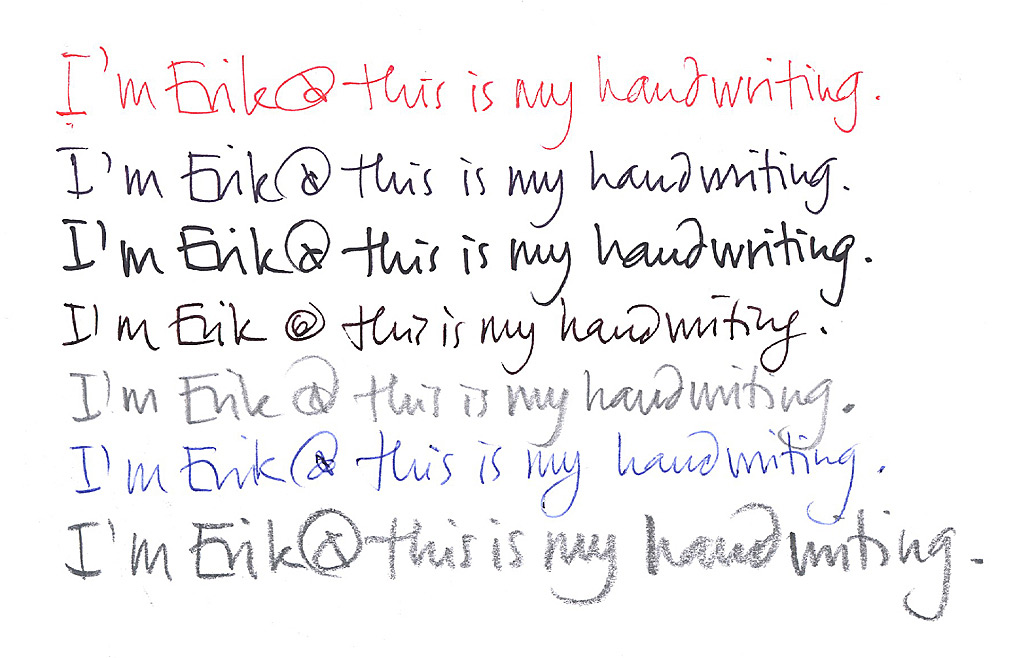 I'm Erik@ this is my handwriting.
I'm Erik@ this is my handwriting.
I'm Erik@ this is my handwriting.
I'm Erik @ this is my handwriting.
I'm Erik@ this is my handwriting.
I'm Erik@ this is my handwriting.
I'm Erik@ this is my handwriting.